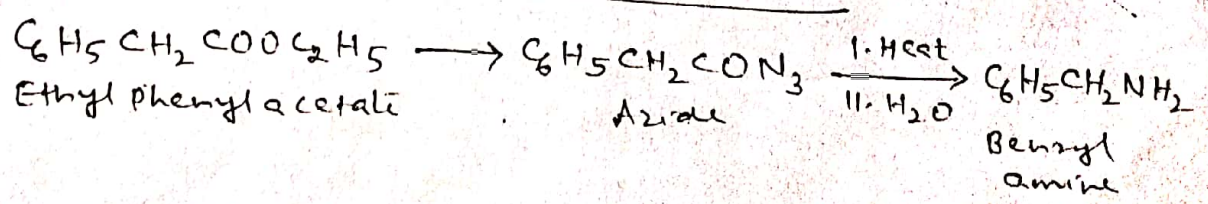 C6H5CH2COOC2H5 ⟶ C6H5CH2CON3 I. Heat ⟶ II. H2O C6H5CH2NH2
Ethyl phenylacetate Azide Benzyl
amine